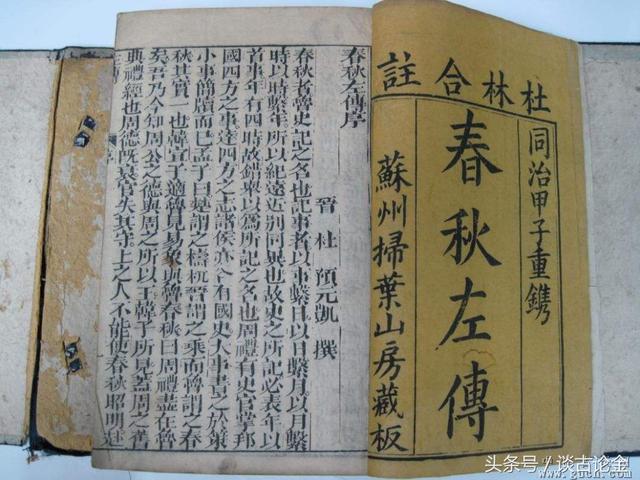 杜林合註
同治甲子重鐫
春秋左傳
蘇州掃葉山房藏板
春秋左傳序
晉 杜 預元凱 撰
春秋者魯史記之名也記事者以事繫日以日繫月以月繫
時以時繫年所以紀遠近別同異也故史之所記必表年以
首事年有四時故錯舉以爲所記之名也周禮有史官掌邦
國四方之事達四方之志諸侯亦各有國史大事書之於策
小事簡牘而已孟子曰楚謂之檮杌晉謂之乘而魯謂之春
秋其實一也韓宣子適魯見易象與魯春秋曰周禮盡在魯
矣吾乃今知周公之德與周之所以王韓子所見蓋周之舊
典禮經也周德旣衰官失其守上之人不能使春秋昭明赴
头条号/谈古论金
www.gucn.com